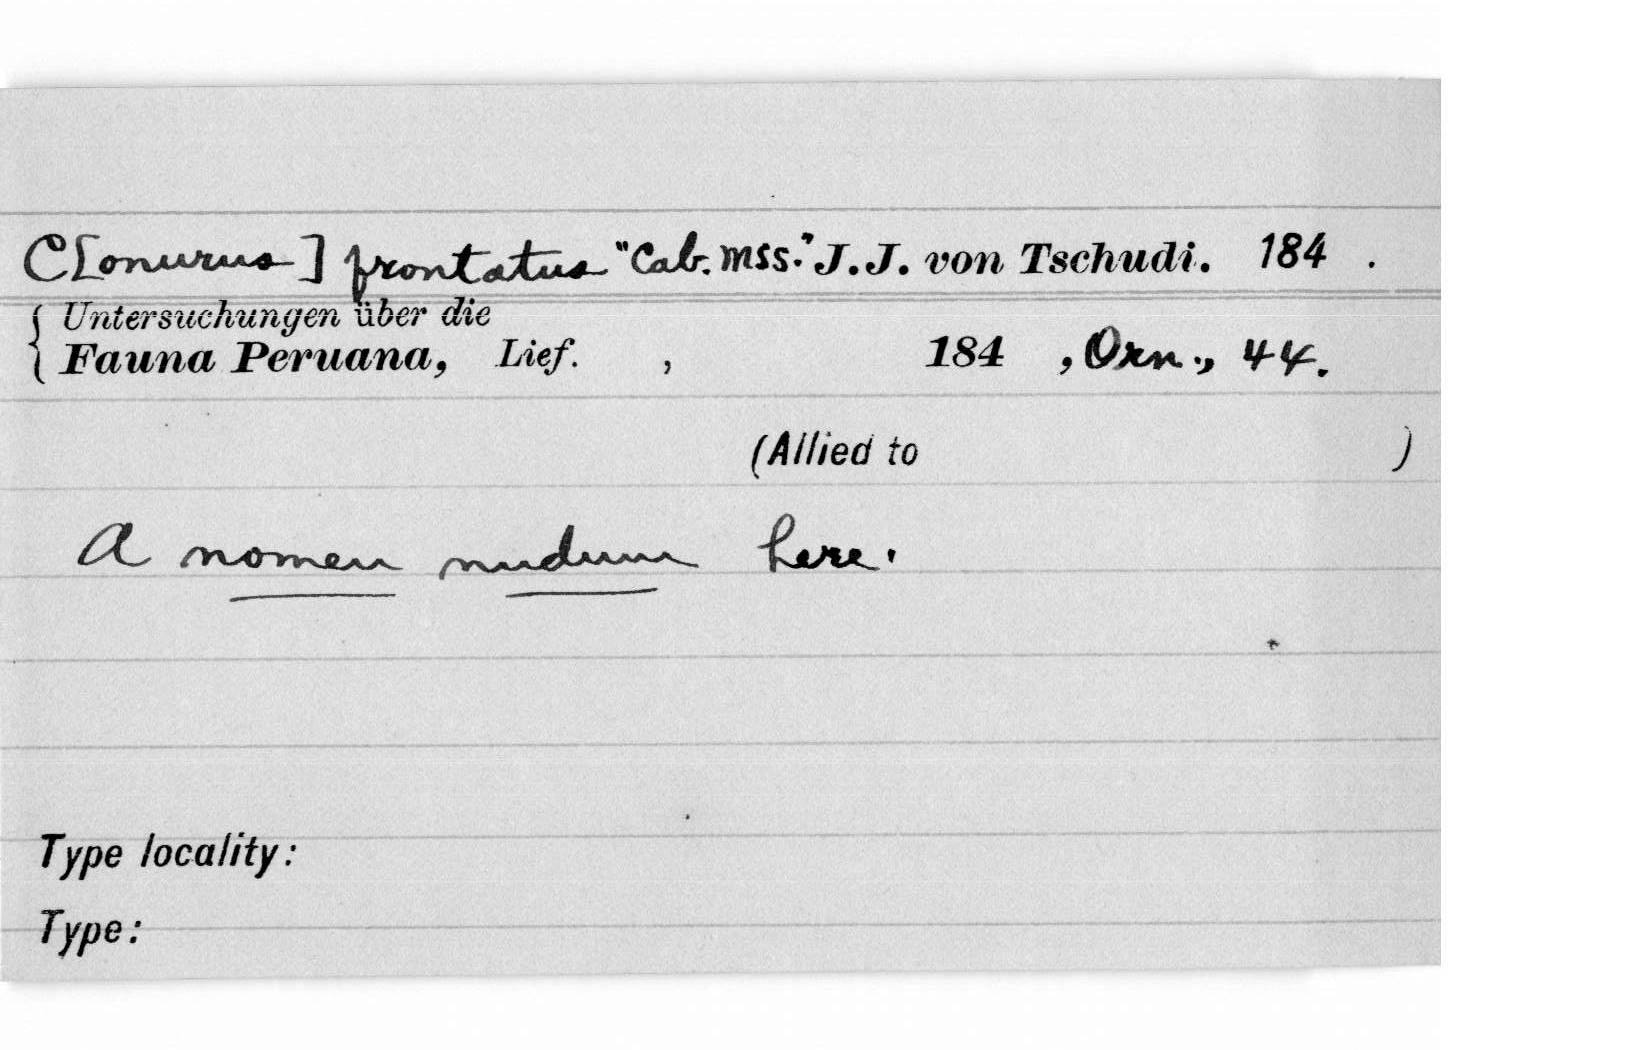 C[onurus] frontatus "Cab. mss." J. J. von Tschudi. 184 .
{ Untersuchungen über die
Fauna Peruana, Lief. , 184 , Orn., 44.
(Allied to )
A nomen nudum here.
Type locality:
Type: